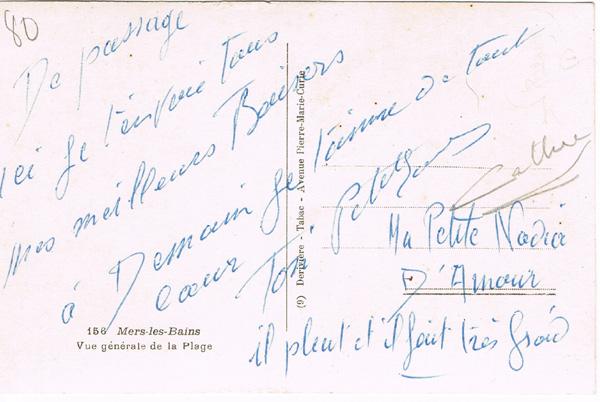 80
De passage
ici je t'envoie tous
mes meilleurs Baisers
à Demain je t'aime de tout
cœur Ton
Ma Petite Nadia
D'Amour
il pleut et il fait très froid
156 Mers-les-Bains
Vue générale de la Plage
(9) Derivière - Tabac - Avenue Pierre-Marie-Curie